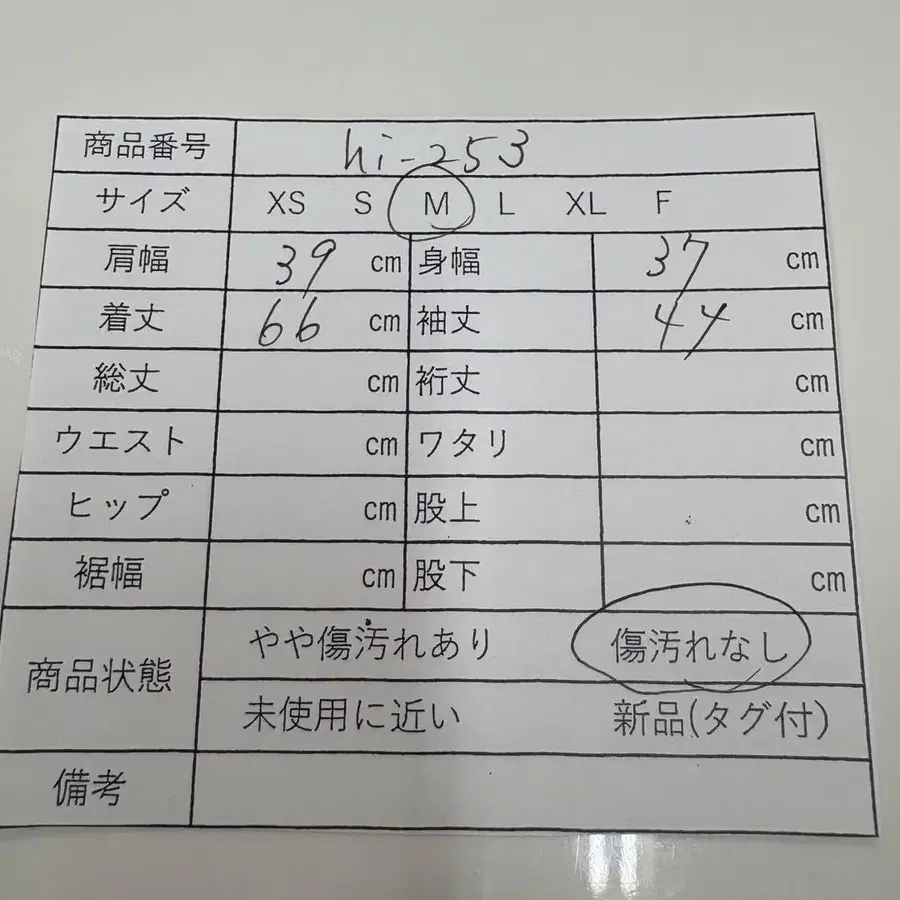 商品番号 hi-253
サイズ XS S M L XL F
肩幅 39 cm 身幅 37 cm
着丈 66 cm 袖丈 44 cm
総丈 cm 裄丈 cm
ウエスト cm ワタリ cm
ヒップ cm 股上 cm
裾幅 cm 股下 cm
商品状態 やや傷汚れあり 傷汚れなし
未使用に近い 新品(タグ付)
備考